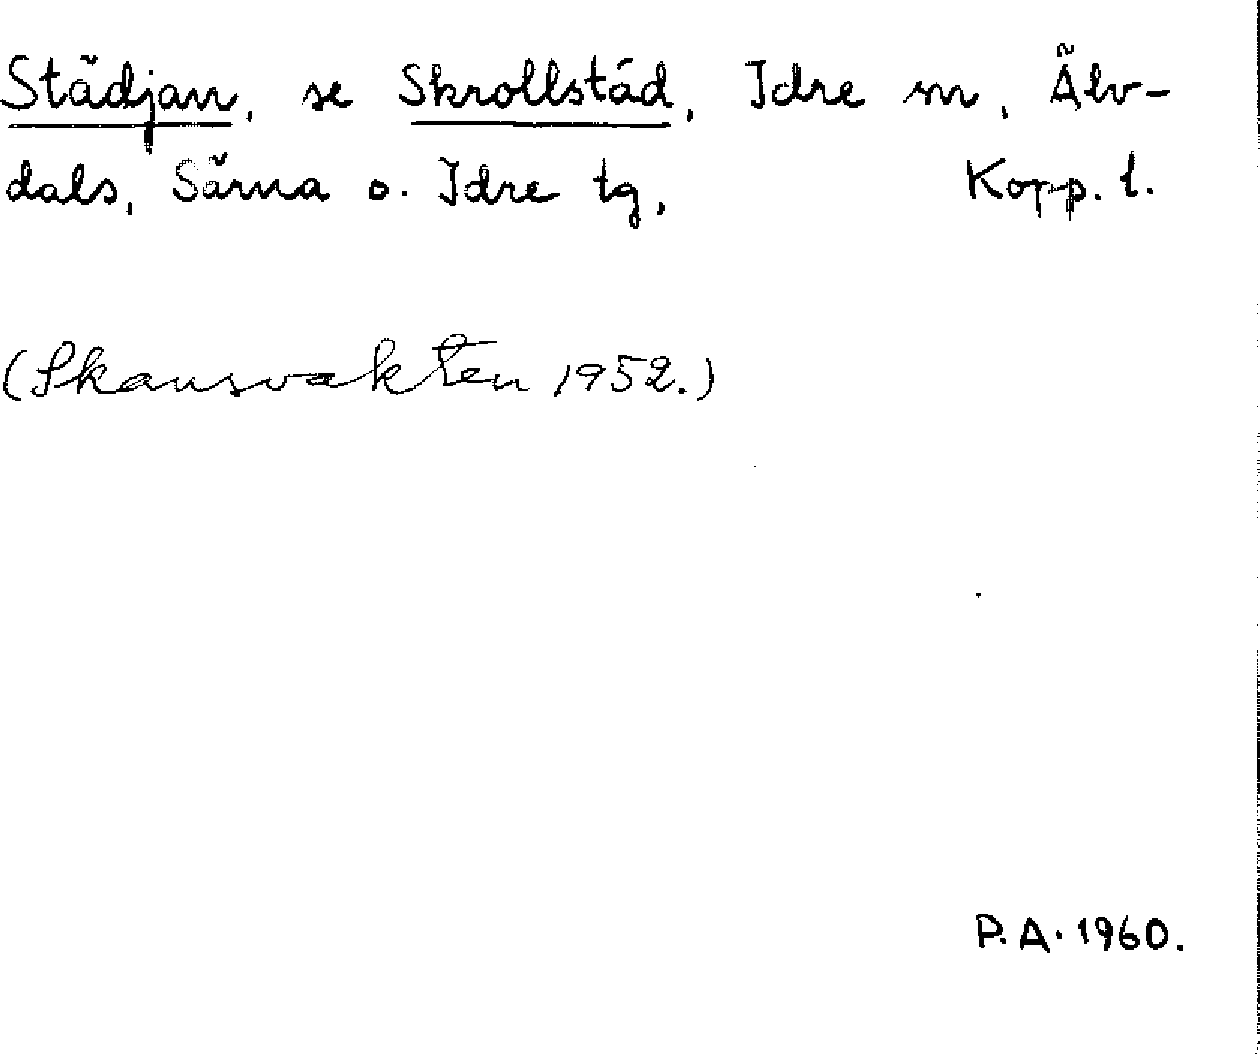 Städjan, se Skrollstäd, Idre sn, Älv-
dals, Särna o. Idre tg, Kopp. l.
(Skansvakten 1952.)
P.A. 1960.